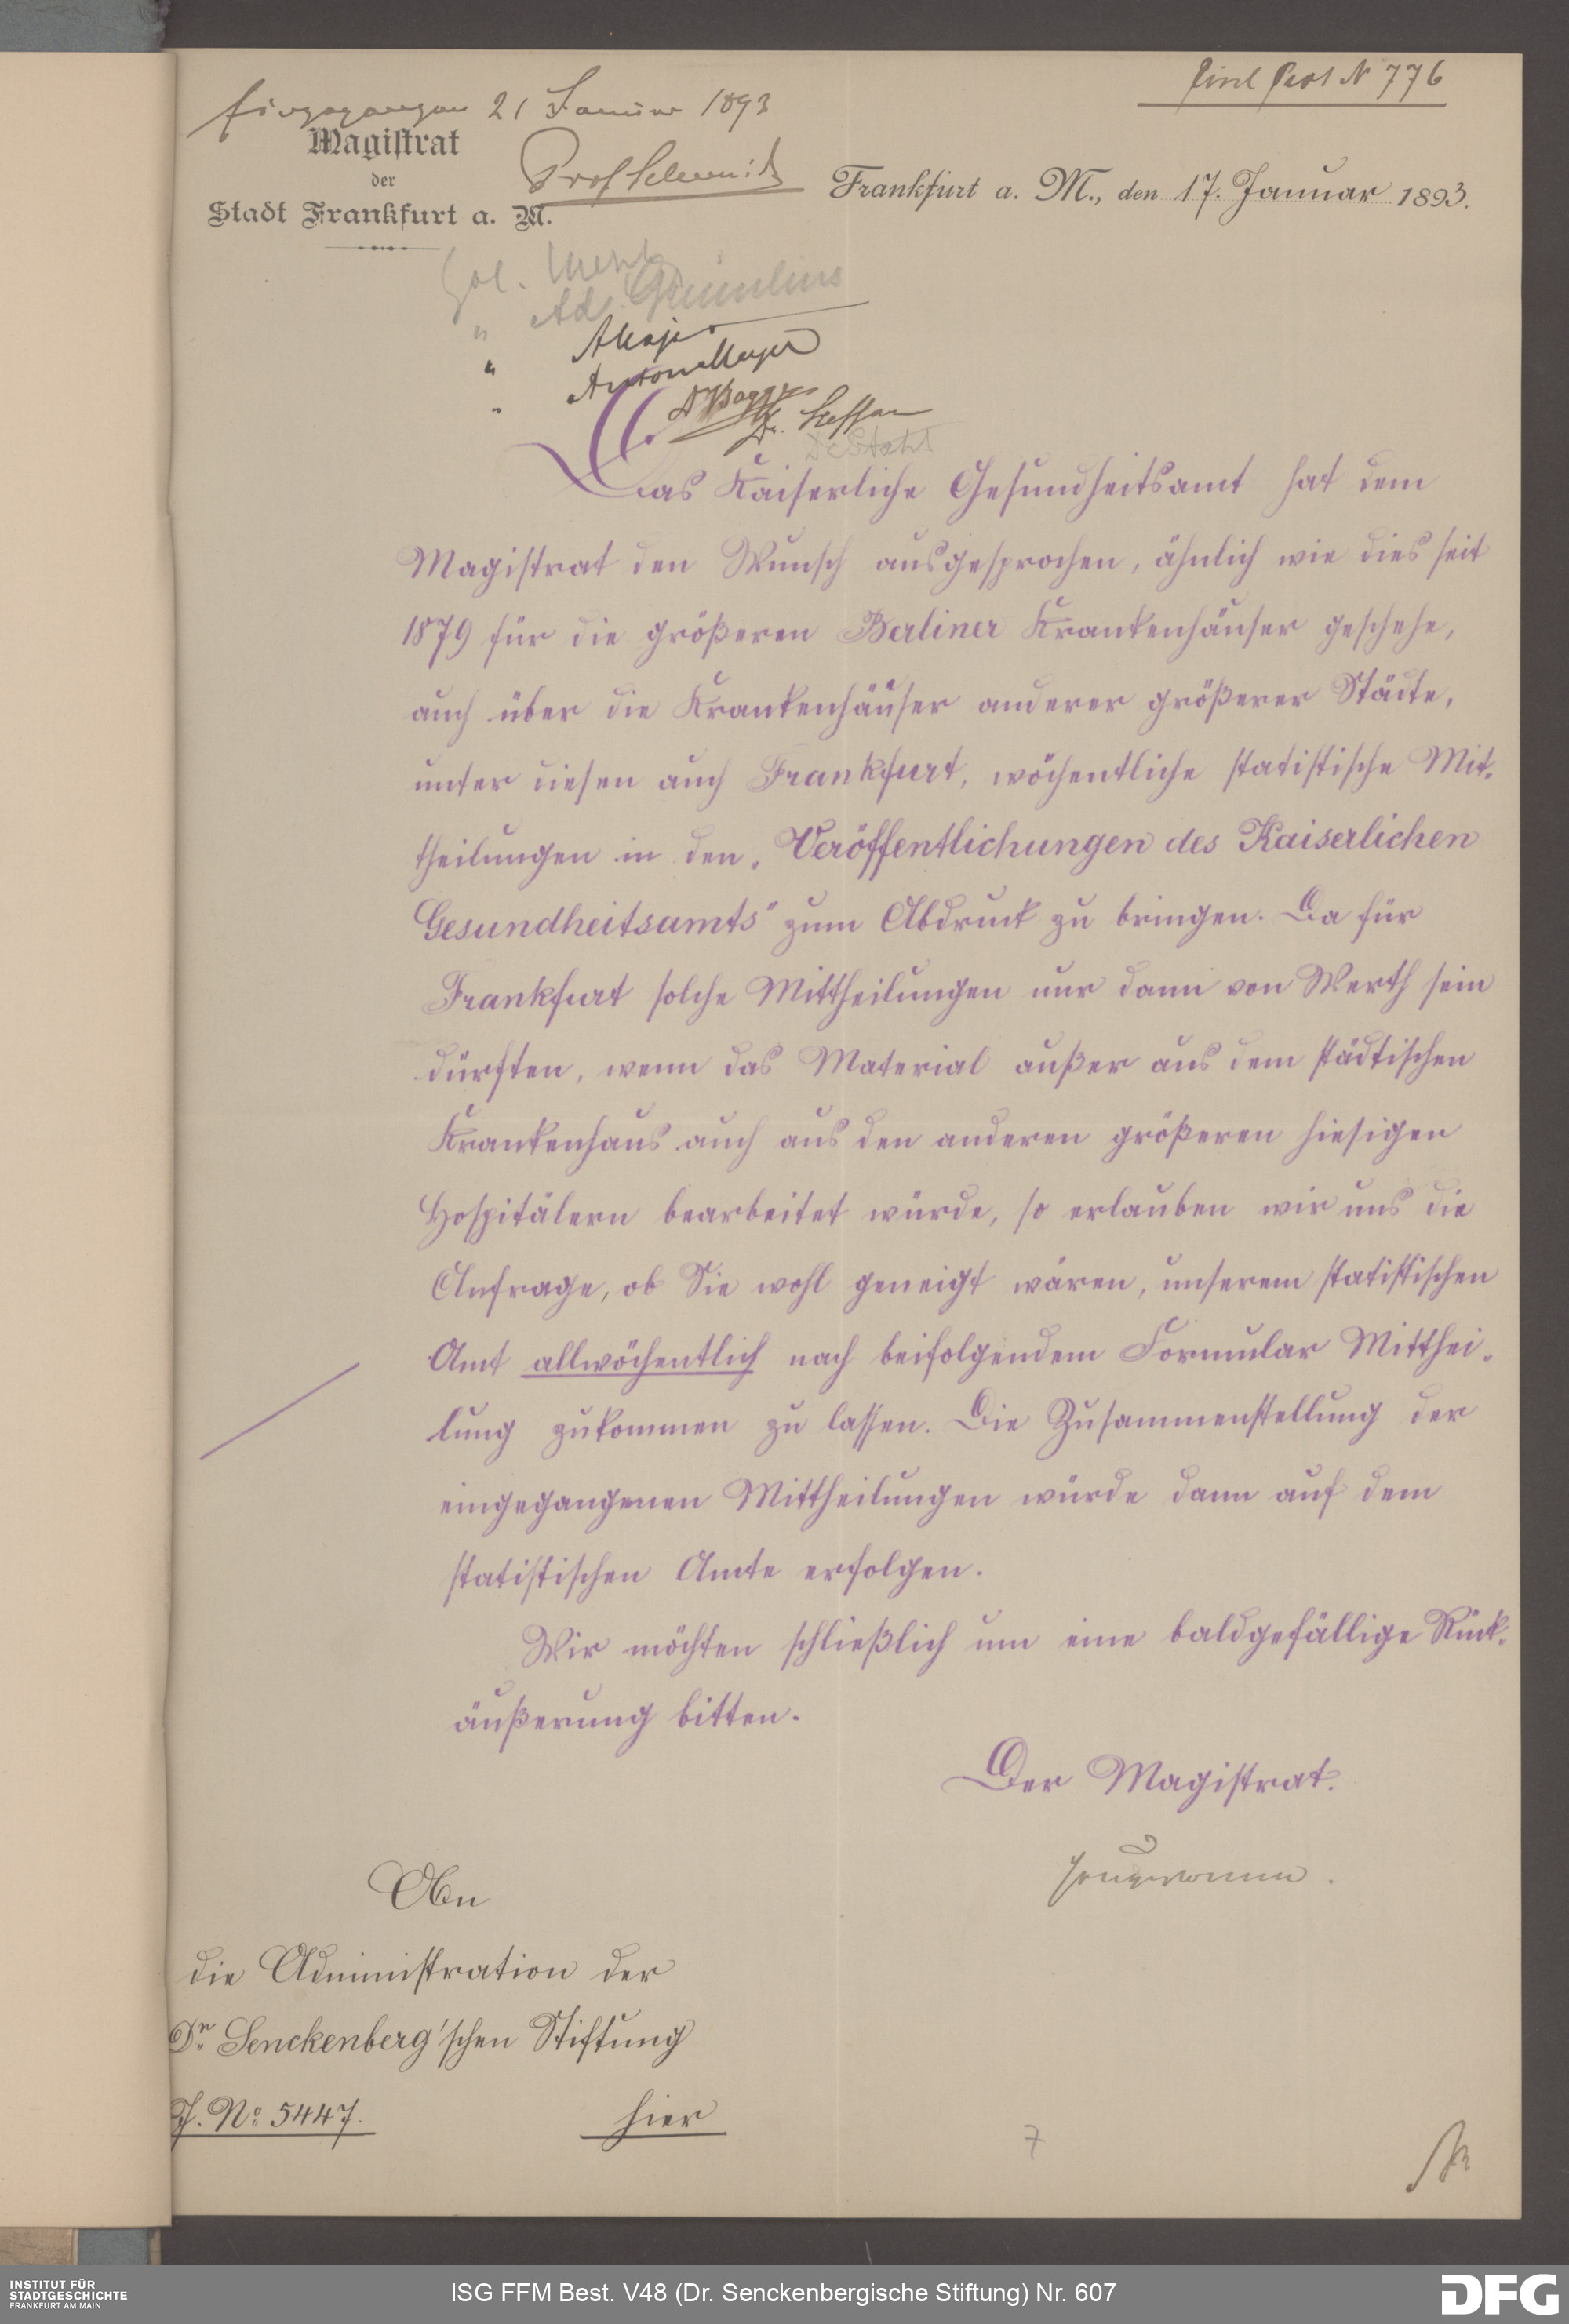 Eingegangen 21 Januar 1893
N 776
Magistrat
der
Stadt Frankfurt a. M.
Frankfurt a. M., den 17. Januar 1893.
Dr. Steffan
Das Kaiserliche Gesundheitsamt hat dem
Magistrat den Wunsch ausgesprochen, ähnlich wie dies seit
1879 für die größeren Berliner Krankenhäuser geschehe,
auch über die Krankenhäuser anderer größerer Städte,
unter diesen auch Frankfurt, wöchentliche statistische Mit-
theilungen in den „Veröffentlichungen des Kaiserlichen
Gesundheitsamts“ zum Abdruck zu bringen. Da für
Frankfurt solche Mittheilungen nur dann von Werth sein
dürften, wenn das Material außer aus dem städtischen
Krankenhaus auch aus den anderen größeren hiesigen
Hospitälern bearbeitet würde, so erlauben wir uns die
Anfrage, ob Sie wohl geneigt wären, unserem statistischen
Amt allwöchentlich nach beifolgendem Formular Mitthei-
lung zukommen zu lassen. Die Zusammenstellung der
eingegangenen Mittheilungen würde dann auf dem
statistischen Amte erfolgen.
Wir möchten schließlich um eine baldgefällige Rück-
äußerung bitten.
Der Magistrat.
An
die Administration der
Dr. Senckenberg'schen Stiftung
J. No 5447.
hier
7
INSTITUT FÜR
STADTGESCHICHTE
FRANKFURT AM MAIN
ISG FFM Best. V48 (Dr. Senckenbergische Stiftung) Nr. 607
DFG